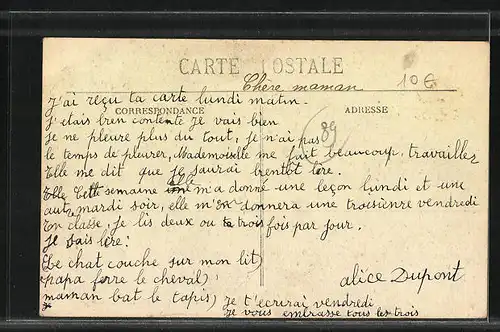 CARTE POSTALE
Chère maman
10€
J'ai reçu ta carte lundi matin.
CORRESPONDANCE
ADRESSE
J'étais bien contente je vais bien
89
Je ne pleure plus du tout, je n'ai pas
le temps de pleurer, Mademoiselle me fait beaucoup travailler
Elle me dit que je saurai bientôt lire.
Elle Cette semaine elle m'a donné une leçon lundi et une
autre mardi soir, elle m'en donnera une troisième vendredi
En classe, je lis deux ou trois fois par jour.
Je sais lire:
(Le chat couche sur mon lit)
(papa ferre le cheval)
maman bat le tapis)
alice Dupont
Je t'ecrirai vendredi
Je vous embrasse tous les trois